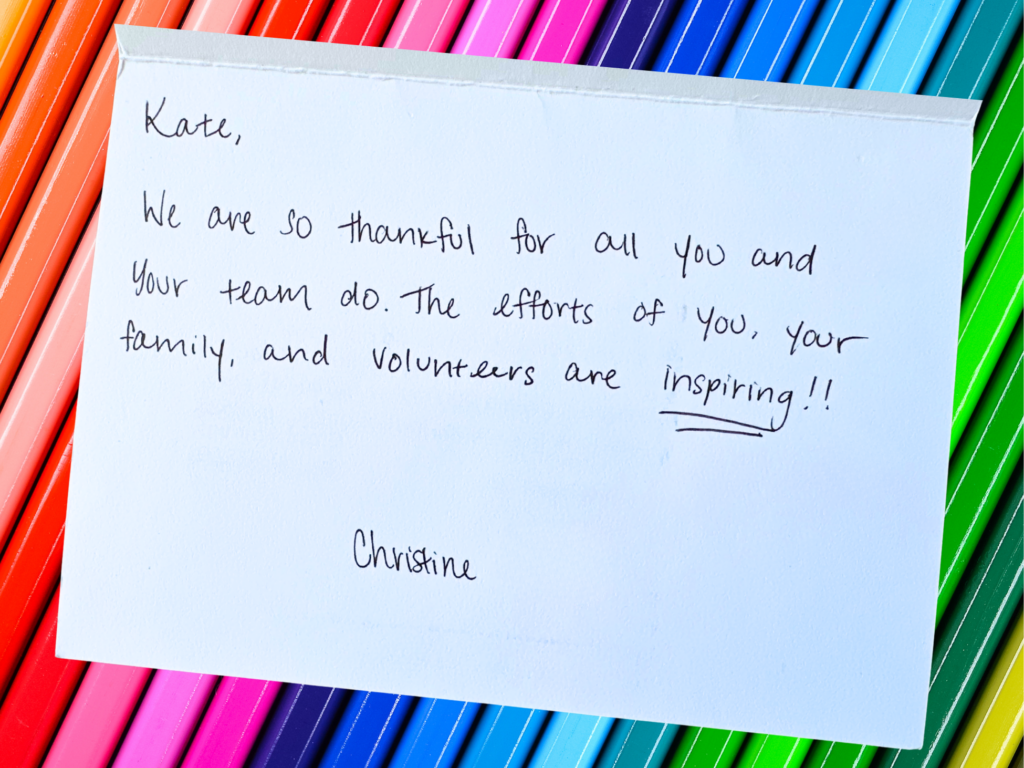 Kate,
We are so thankful for all you and
your team do. The efforts of you, your
family, and volunteers are inspiring!!
Christine